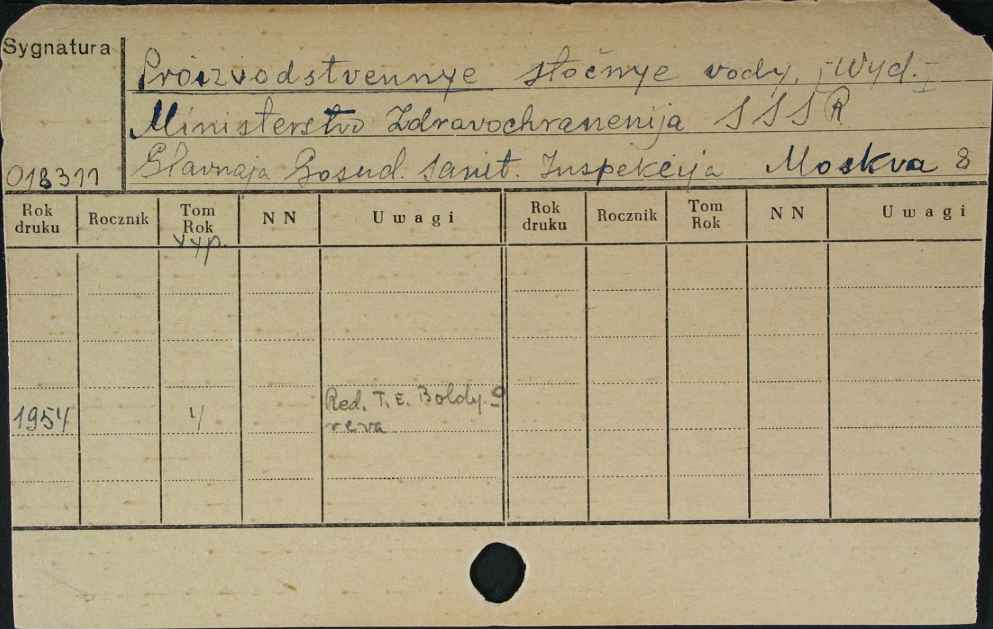 Sygnatura
Proizvodstvennye stočnye vody, [Wyd.]
Ministerstvo Zdravochranenija SSSR
018311 Glavnaja Gosud. Sanit. Inspekcija Moskva 8
Rok druku Rocznik Tom Rok NN Uwagi Rok druku Rocznik Tom Rok NN Uwagi
vyp.
Red. T. E. Boldy-
1954 4 reva